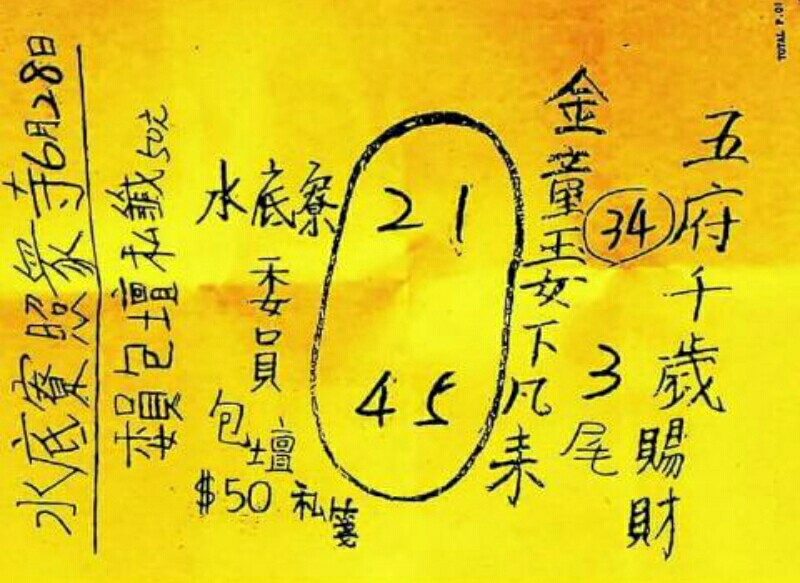 TOTAL P.01
五府千歲賜財
34
3尾
金童玉女下凡来
21
45
水底寮
委員
包壇
$50 私箋
賴包壇私鐵50元
水底寮照眾寺6月28日